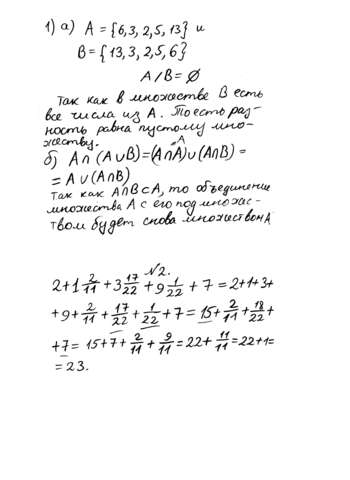 1) а) A = {6,3,2,5,13} и
B = {13,3,2,5,6}
A/B = ∅
Так как в множестве B есть
все числа из A. То есть раз-
ность равна пустому мно-
жеству.
=A
б) A∩(A∪B)=(A∩A)∪(A∩B)=
= A∪(A∩B)
Так как A∩B⊂A, то объединение
множества A с его подмножес-
твом будет снова множеством A
№2.
2+1 2/11 +3 17/22 +9 1/22 + 7 = 2+1+3+
+9+ 2/11 + 17/22 + 1/22 +7 = 15+ 2/11 + 18/22 +
+7 = 15+7+ 2/11 + 9/11 = 22+ 11/11 = 22+1=
= 23.